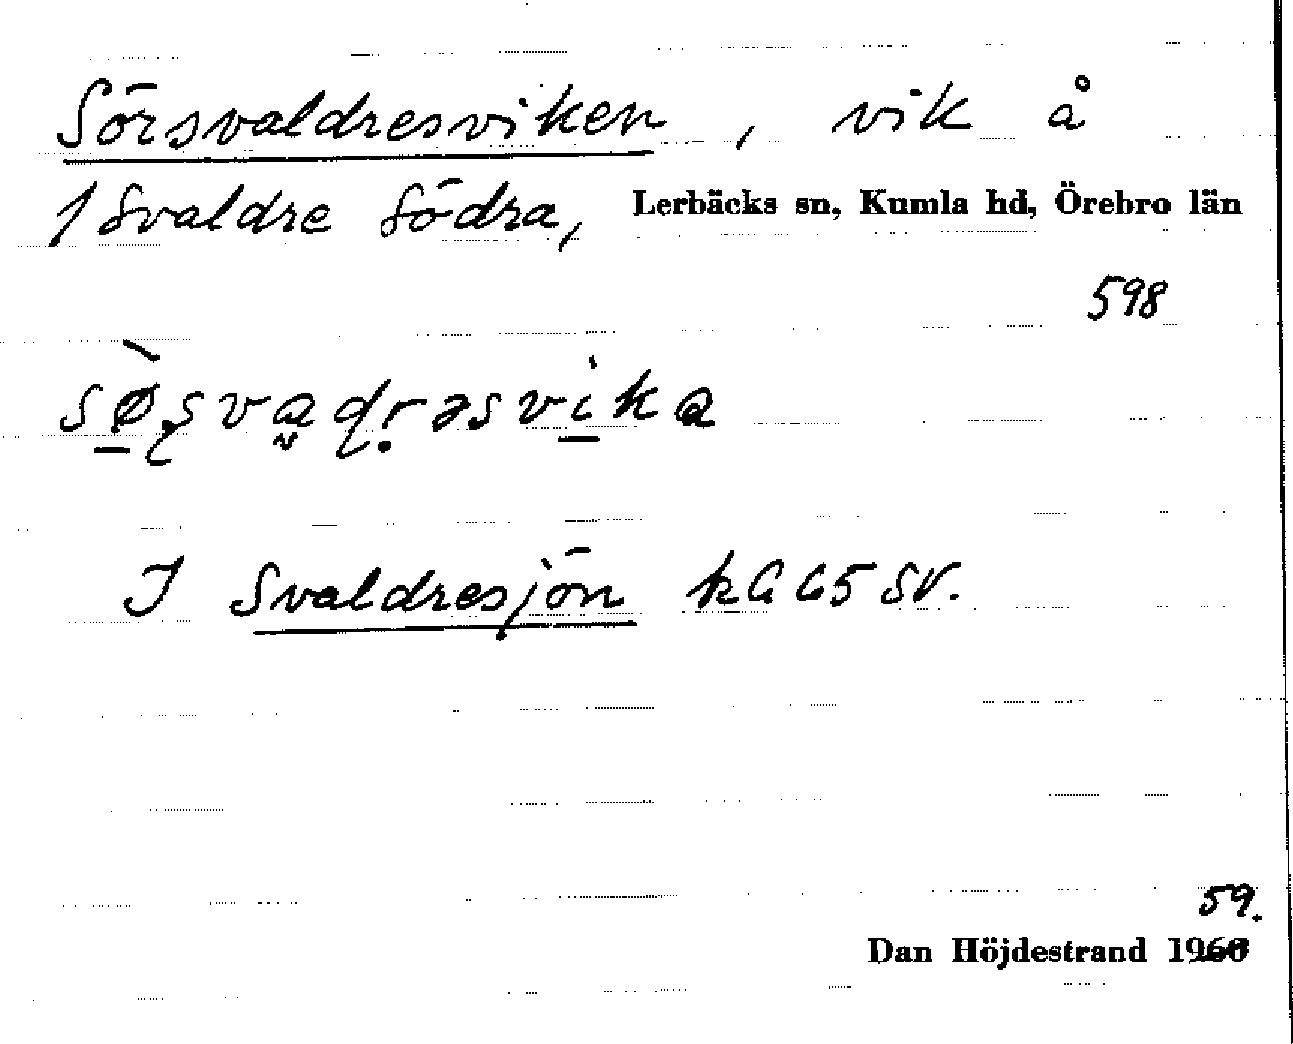 Sörsvaldresviken, vik å
1 Svaldre Södra, Lerbäcks sn, Kumla hd, Örebro län
598
sø̀ʂvaɖr̥əsvika
I Svaldresjön kG 65 SV.
59.
Dan Höjdestrand 1960